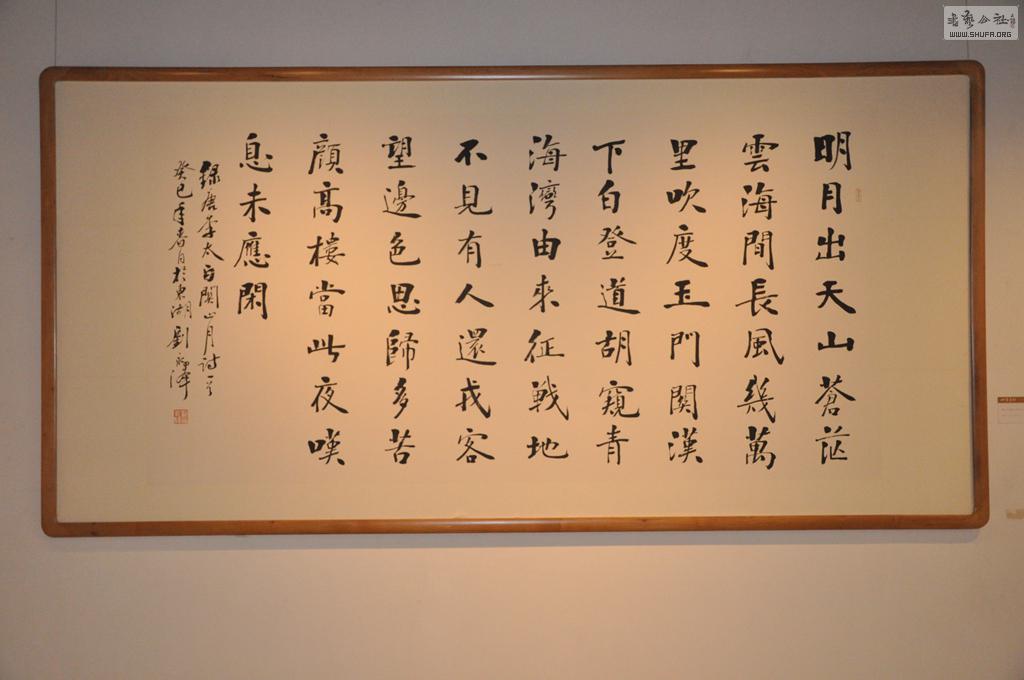 明月出天山蒼茫
雲海間長風幾萬
里吹度玉門關漢
下白登道胡窺青
海灣由來征戰地
不見有人還戎客
望邊色思歸多苦
顏高樓當此夜嘆
息未應閑
錄唐李太白關山月詩一首
癸巳年春月於東湖劉
WWW.SHUFA.ORG